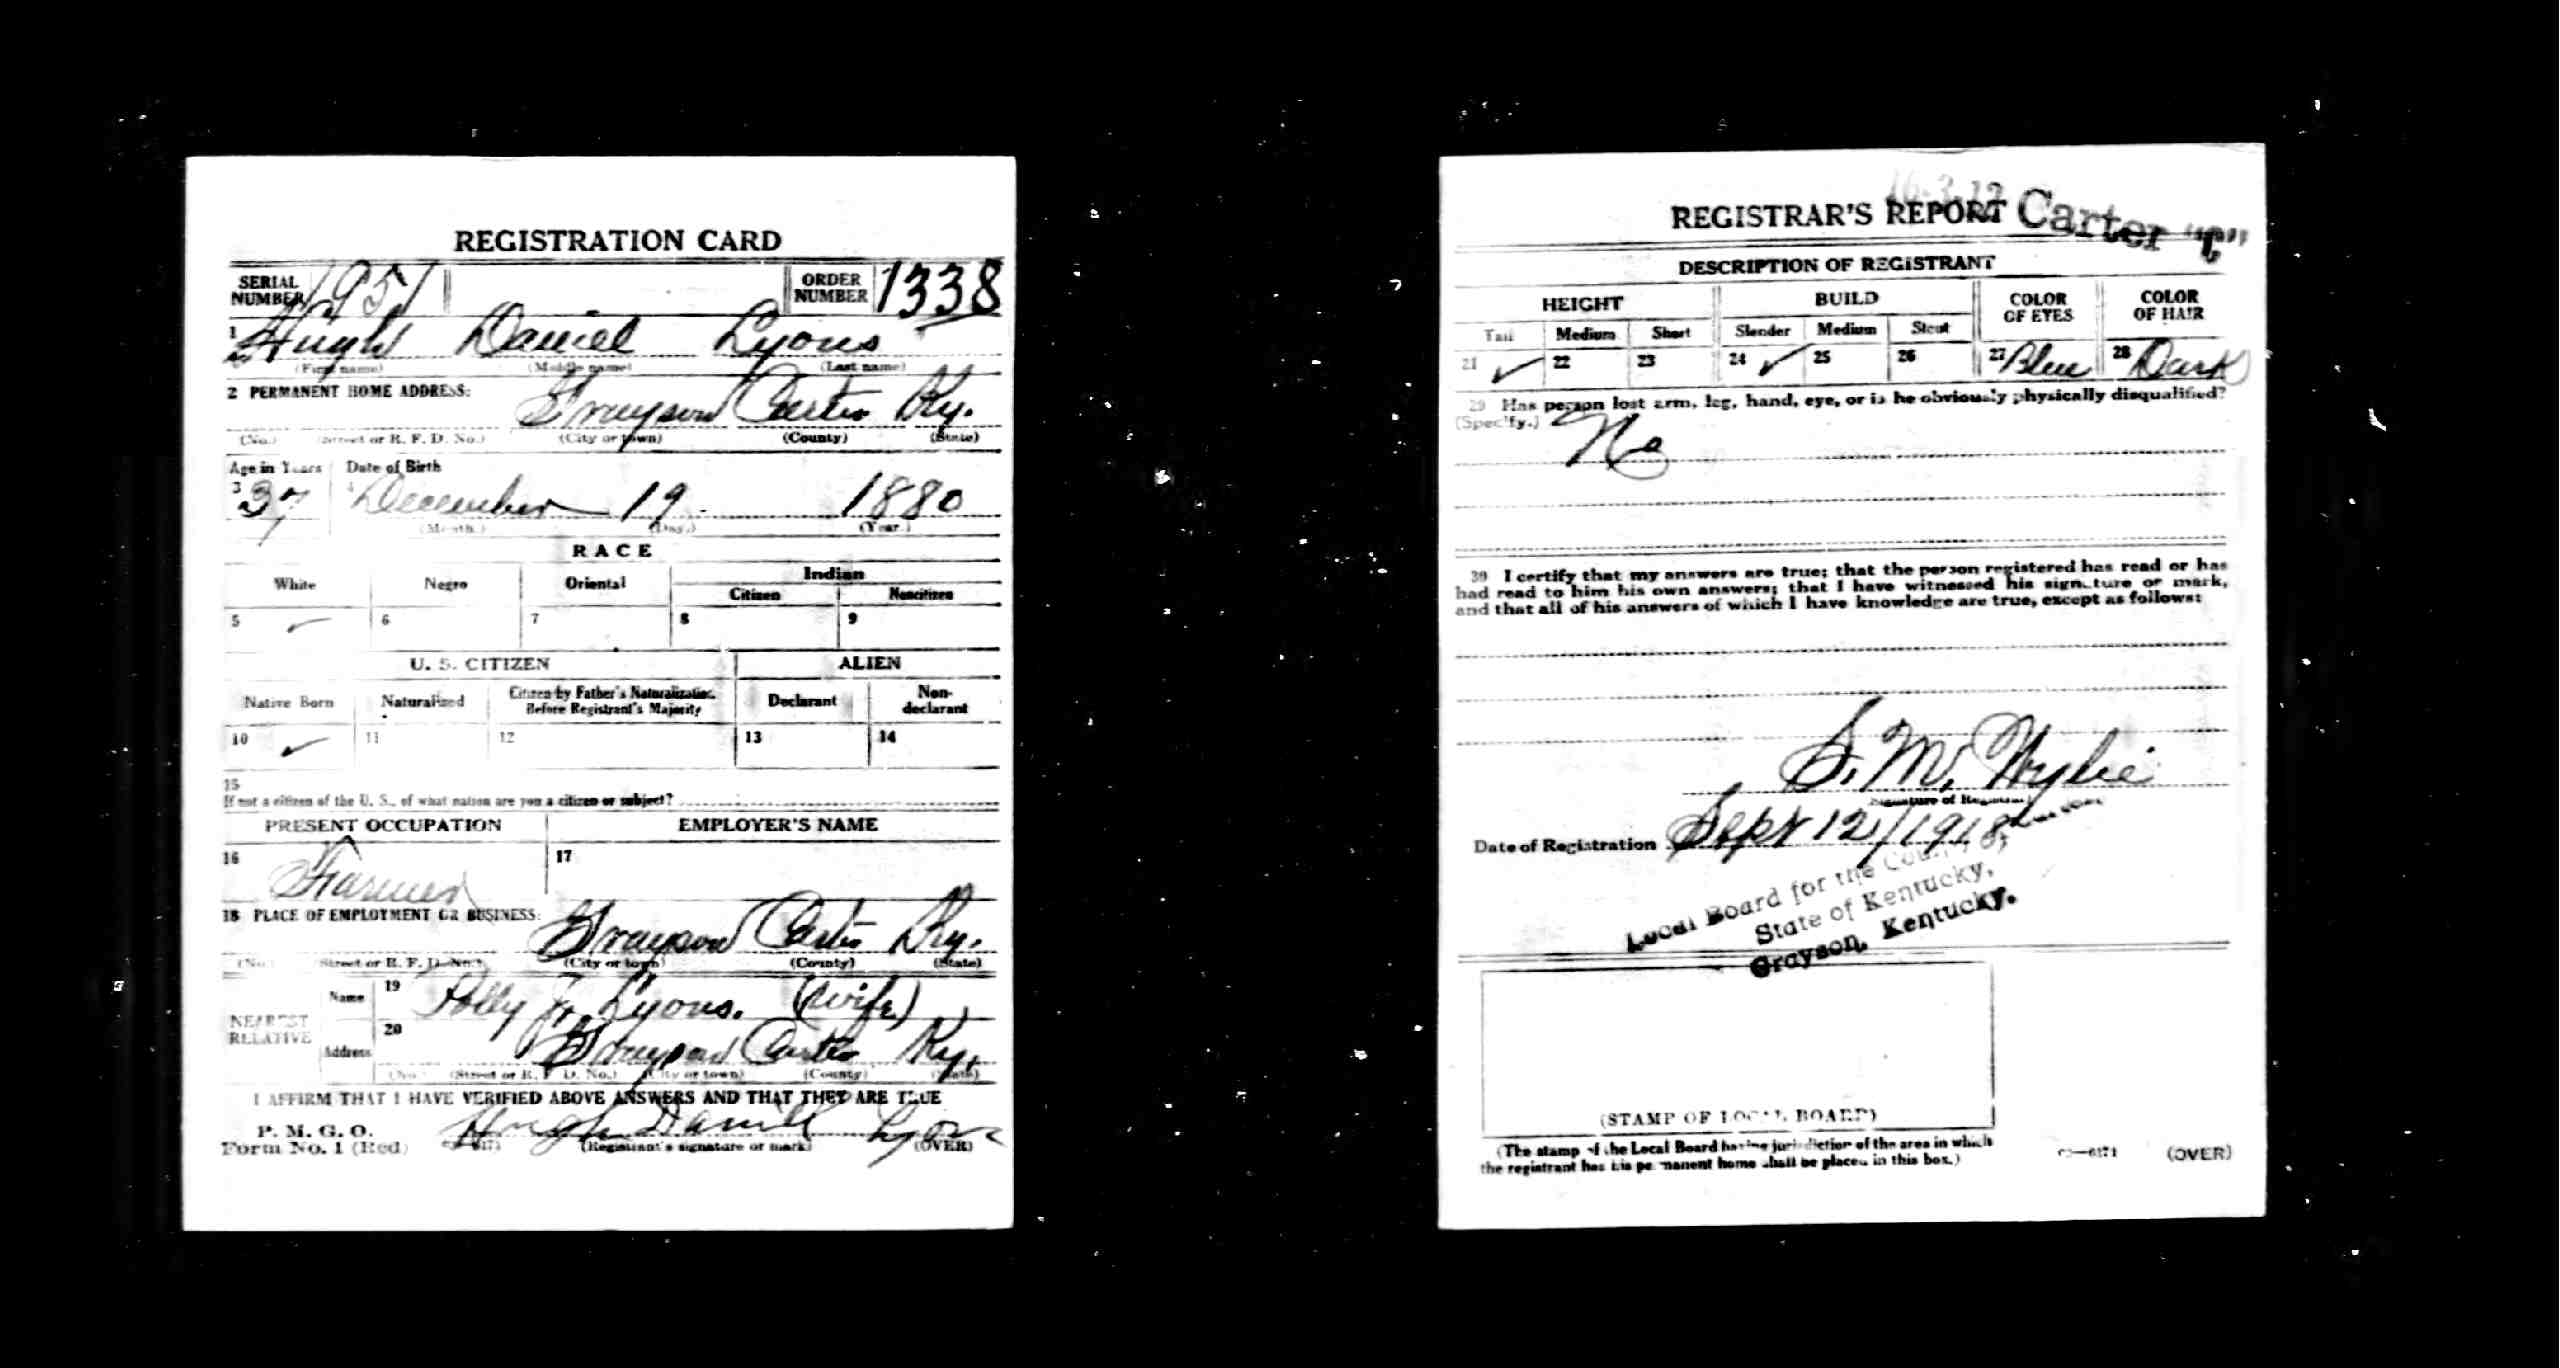 REGISTRATION CARD
SERIAL NUMBER 1951 ORDER NUMBER 1338
1 Hugh Daniel Lyons
(First name) (Middle name) (Last name)
2 PERMANENT HOME ADDRESS:
Grayson Carter Ky.
(No.) (Street or R. F. D. No.) (City or town) (County) (State)
Age in Years Date of Birth
3 37 4 December 19 1880
(Month.) (Day.) (Year.)
RACE
White Negro Oriental Indian
Citizen Noncitizen
5 ✓ 6 7 8 9
U. S. CITIZEN ALIEN
Native Born Naturalized Citizen by Father's Naturalization Before Registrant's Majority Declarant Non-declarant
10 ✓ 11 12 13 14
15
If not a citizen of the U. S., of what nation are you a citizen or subject?
PRESENT OCCUPATION EMPLOYER'S NAME
16 Farmer 17
18 PLACE OF EMPLOYMENT OR BUSINESS:
Grayson Carter Ky.
(No.) (Street or R. F. D. No.) (City or town) (County) (State)
NEAREST RELATIVE Name 19 Polly J. Lyons. (wife)
Address 20 Grayson Carter Ky.
(No.) (Street or R. F. D. No.) (City or town) (County) (State)
I AFFIRM THAT I HAVE VERIFIED ABOVE ANSWERS AND THAT THEY ARE TRUE
P. M. G. O.
Form No. 1 (Red) Hugh Daniel Lyons
(Registrant's signature or mark) (OVER)
16-3-12 Carter "C"
REGISTRAR'S REPORT
DESCRIPTION OF REGISTRANT
HEIGHT BUILD COLOR OF EYES COLOR OF HAIR
Tall Medium Short Slender Medium Stout
21 ✓ 22 23 24 ✓ 25 26 27 Blue 28 Dark
29 Has person lost arm, leg, hand, eye, or is he obviously physically disqualified?
(Specify.) No
30 I certify that my answers are true; that the person registered has read or has
had read to him his own answers; that I have witnessed his signature or mark,
and that all of his answers of which I have knowledge are true, except as follows:
S. M. Wylie
(Signature of Registrar)
Date of Registration Sept 12/1918
Local Board for the County
State of Kentucky,
Grayson, Kentucky.
(STAMP OF LOCAL BOARD)
(The stamp of the Local Board having jurisdiction of the area in which
the registrant has his permanent home shall be placed in this box.)
03—6171 (OVER)